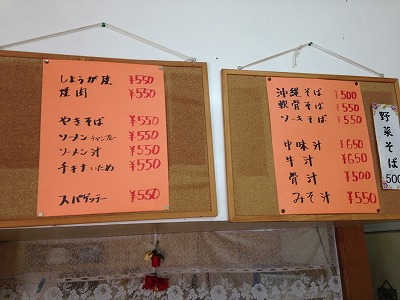 しょうが焼 ¥550
焼肉 ¥550
やきそば ¥550
ソーメンチャンプルー ¥550
ソーメン汁 ¥550
チキナいため ¥550
スパゲッテー ¥550
沖縄そば ¥500
軟骨そば ¥550
ソーキそば ¥550
中味汁 ¥650
牛汁 ¥650
骨汁 ¥500
みそ汁 ¥550
野菜そば
500